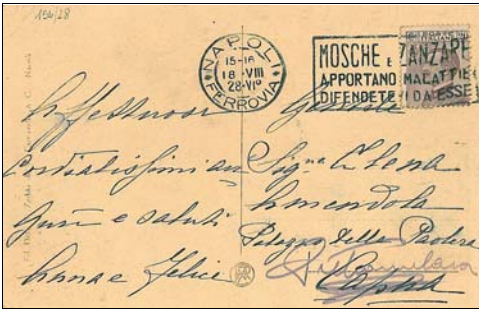 194/28
NAPOLI
15-16
18·VIII
28·VIº
FERROVIA
MOSCHE E ZANZARE
APPORTANO MALATTIE
DIFENDETEVI DA ESSE
Affettuosi
Cordialissimi au
guri e saluti
Anna e Felice
Gentile
Sig.na Elena
Amendola
Palazzo della
Capua